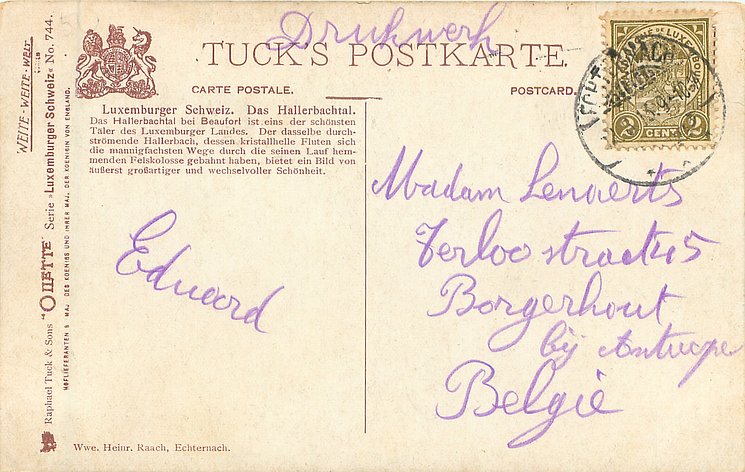 Drukwerk
TUCK'S POSTKARTE.
CARTE POSTALE.
POSTCARD.
Luxemburger Schweiz. Das Hallerbachtal.
Das Hallerbachtal bei Beaufort ist eins der schönsten
Täler des Luxemburger Landes. Der dasselbe durch-
strömende Hallerbach, dessen kristallhelle Fluten sich
die mannigfachsten Wege durch die seinen Lauf hem-
menden Felskolosse gebahnt haben, bietet ein Bild von
äußerst großartiger und wechselvoller Schönheit.
Eduoord
Madam Lenaerts
Terloo straat 45
Borgerhout
bij Antwerpe
België
2 CENT. 2
WEITE-WEITE-WELT
Raphael Tuck & Sons "OILETTE" Serie »Luxemburger Schweiz« No. 744.
HOFLIEFERANTEN S. MAJ. DES KOENIGS UND IHRER MAJ. DER KOENIGIN VON ENGLAND.
Wwe. Heinr. Raach, Echternach.